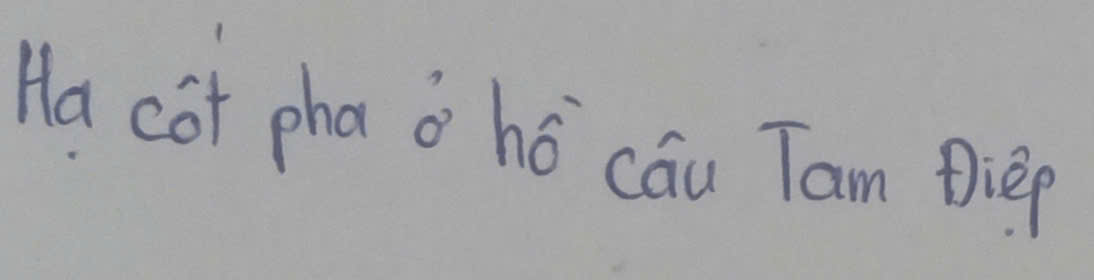 Hạ cốt pha ở hồ câu Tam Điệp